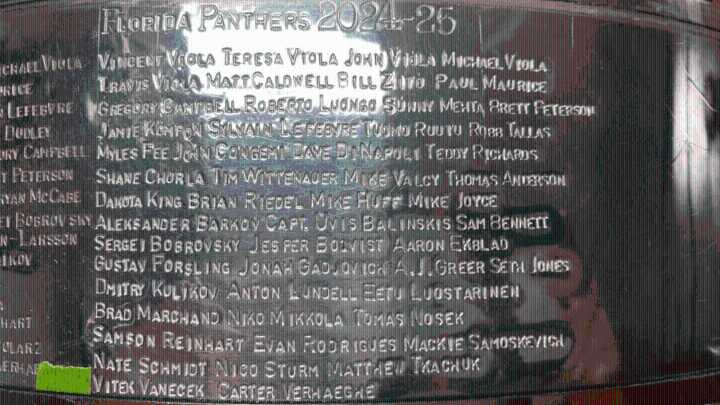 FLORIDA PANTHERS 2024-25
VINCENT VIOLA TERESA VIOLA JOHN VIOLA MICHAEL VIOLA
TRAVIS VIOLA MATT CALDWELL BILL ZITO PAUL MAURICE
GREGORY CAMPBELL ROBERTO LUONGO SUNNY MEHTA BRETT PETERSON
JAMIE KOMPON SYLVAIN LEFEBVRE TUOMO RUUTU ROBB TALLAS
MYLES FEE JOHN GONGEMI DAVE DINAPOLI TEDDY RICHARDS
SHANE CHORLA TIM WITTENAUER MIKE VALCY THOMAS ANDERSON
DAKOTA KING BRIAN RIEDEL MIKE HUFF MIKE JOYCE
ALEKSANDER BARKOV CAPT. UVIS BALINSKIS SAM BENNETT
SERGEI BOBROVSKY JESPER BOQVIST AARON EKBLAD
GUSTAV FORSLING JONAH GADJOVICH A.J. GREER SETH JONES
DMITRY KULIKOV ANTON LUNDELL EETU LUOSTARINEN
BRAD MARCHAND NIKO MIKKOLA TOMAS NOSEK
SAMSON REINHART EVAN RODRIGUES MACKIE SAMOSKEVICH
NATE SCHMIDT NICO STURM MATTHEW TKACHUK
VITEK VANECEK CARTER VERHAEGHE
MICHAEL VIOLA
LEFEBVRE
DUDLEY
CAMPBELL
PETERSON
MCCABE
BOBROVSKY
-LARSSON